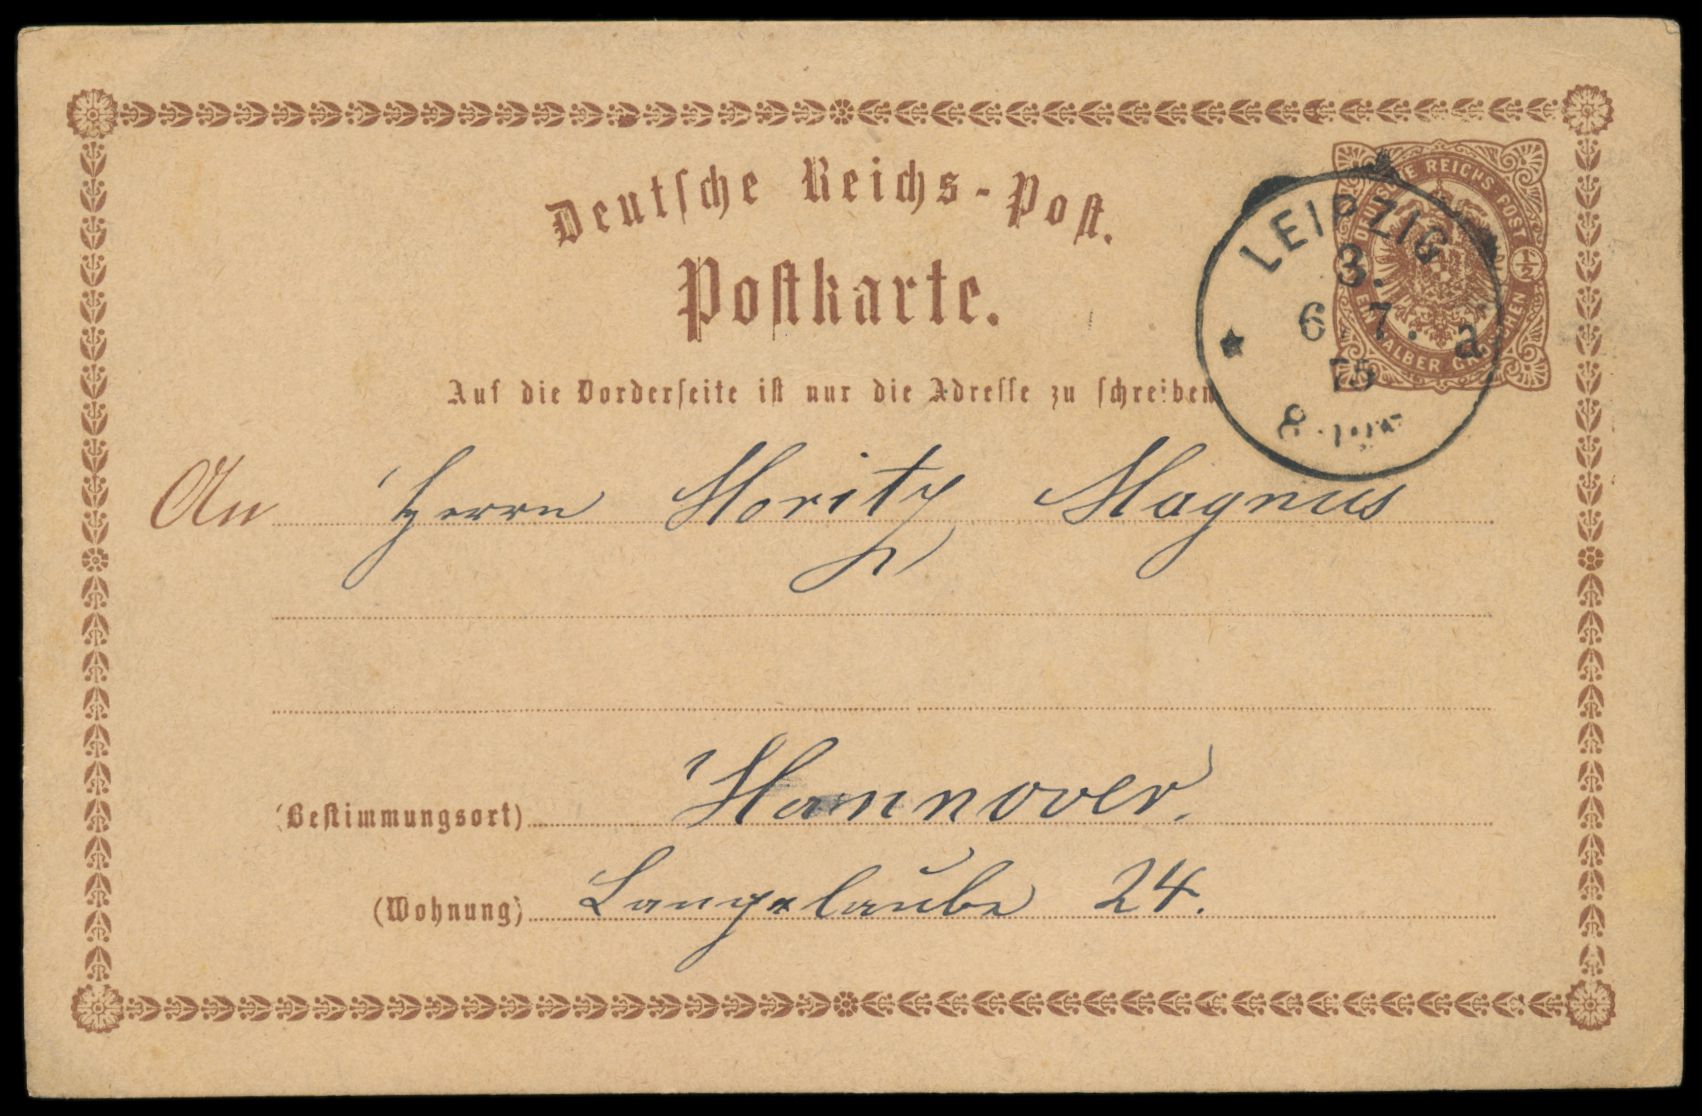 Deutsche Reichs-Post.
Postkarte.
DEUTSCHE REICHS-POST
1/2
EIN HALBER GROSCHEN
LEIPZIG
3.
6 7. a
75
8
Auf die Vorderseite ist nur die Adresse zu schreiben
An Herrn Moritz Magnus
(Bestimmungsort) Hannover.
(Wohnung) Langelaube 24.